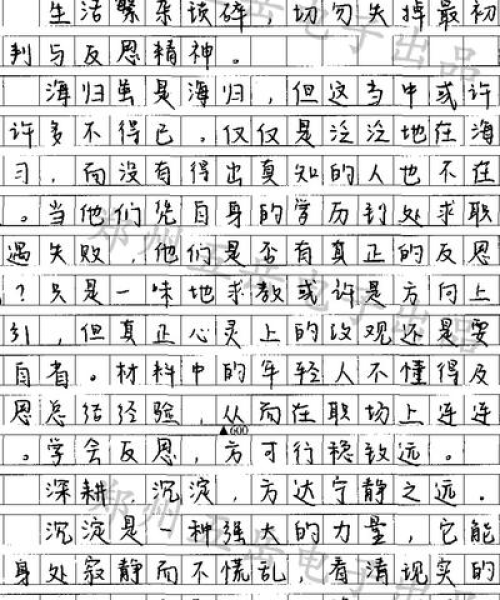 生活繁杂琐碎，切勿失掉最初
判与反恩精神。
海归虽是海归，但这当中或许
许多不得已。仅仅是泛泛地在海
习，而没有得出真知的人也不在
。当他们凭自身的学历到处求职
遇失败，他们是否有真正的反恩
？只是一味地求教或许是方向上
引，但真正心灵上的改观还是要
自省。材料中的年轻人不懂得及
恩总结经验，从而在职场上连连
▲600
。学会反恩，方可行稳致远。
深耕、沉淀，方达宁静之远。
沉淀是一种强大的力量，它能
身处寂静而不慌乱，看清现实的
郑州五岳电子出品